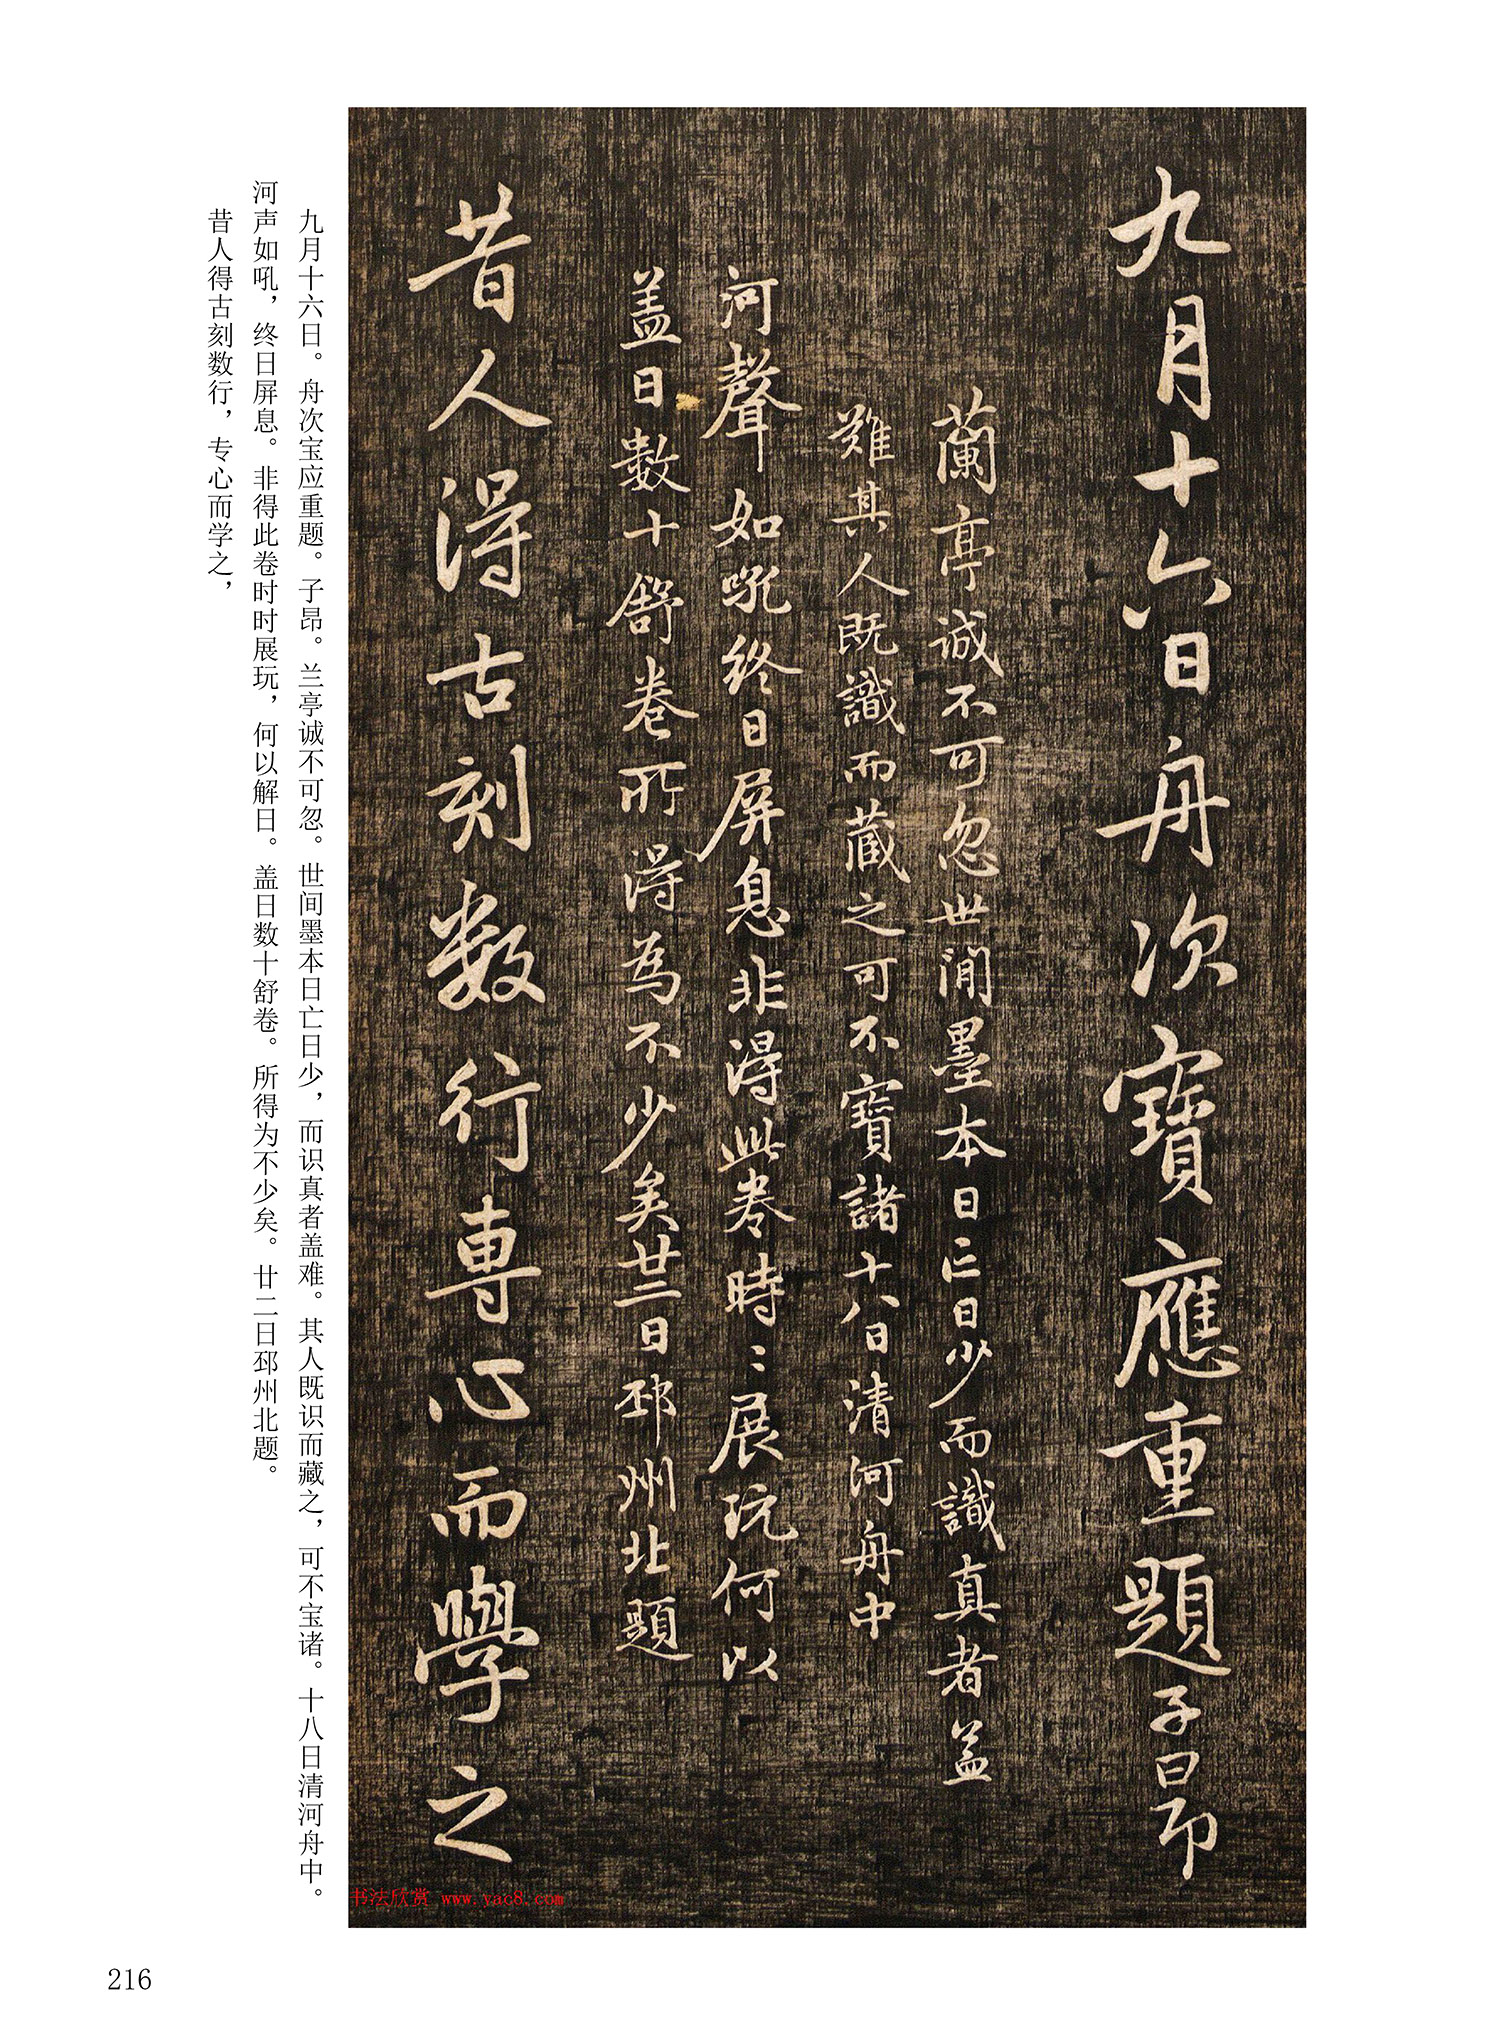 九月十六日舟次寶應重題子昂
蘭亭誠不可忽世間墨本日亡日少而識真者盖
難其人既識而藏之可不寶諸十八日清河舟中
河聲如吼終日屏息非得此卷時〻展玩何以
盖日數十舒卷所得為不少矣廿二日邳州北題
昔人得古刻数行專心而學之
书法欣赏 www.yac8.com
九月十六日。舟次宝应重题。子昂。兰亭诚不可忽。世间墨本日亡日少，而识真者盖难。其人既识而藏之，可不宝诸。十八日清河舟中。
河声如吼，终日屏息。非得此卷时时展玩，何以解日。盖日数十舒卷。所得为不少矣。廿二日邳州北题。
昔人得古刻数行，专心而学之，
216